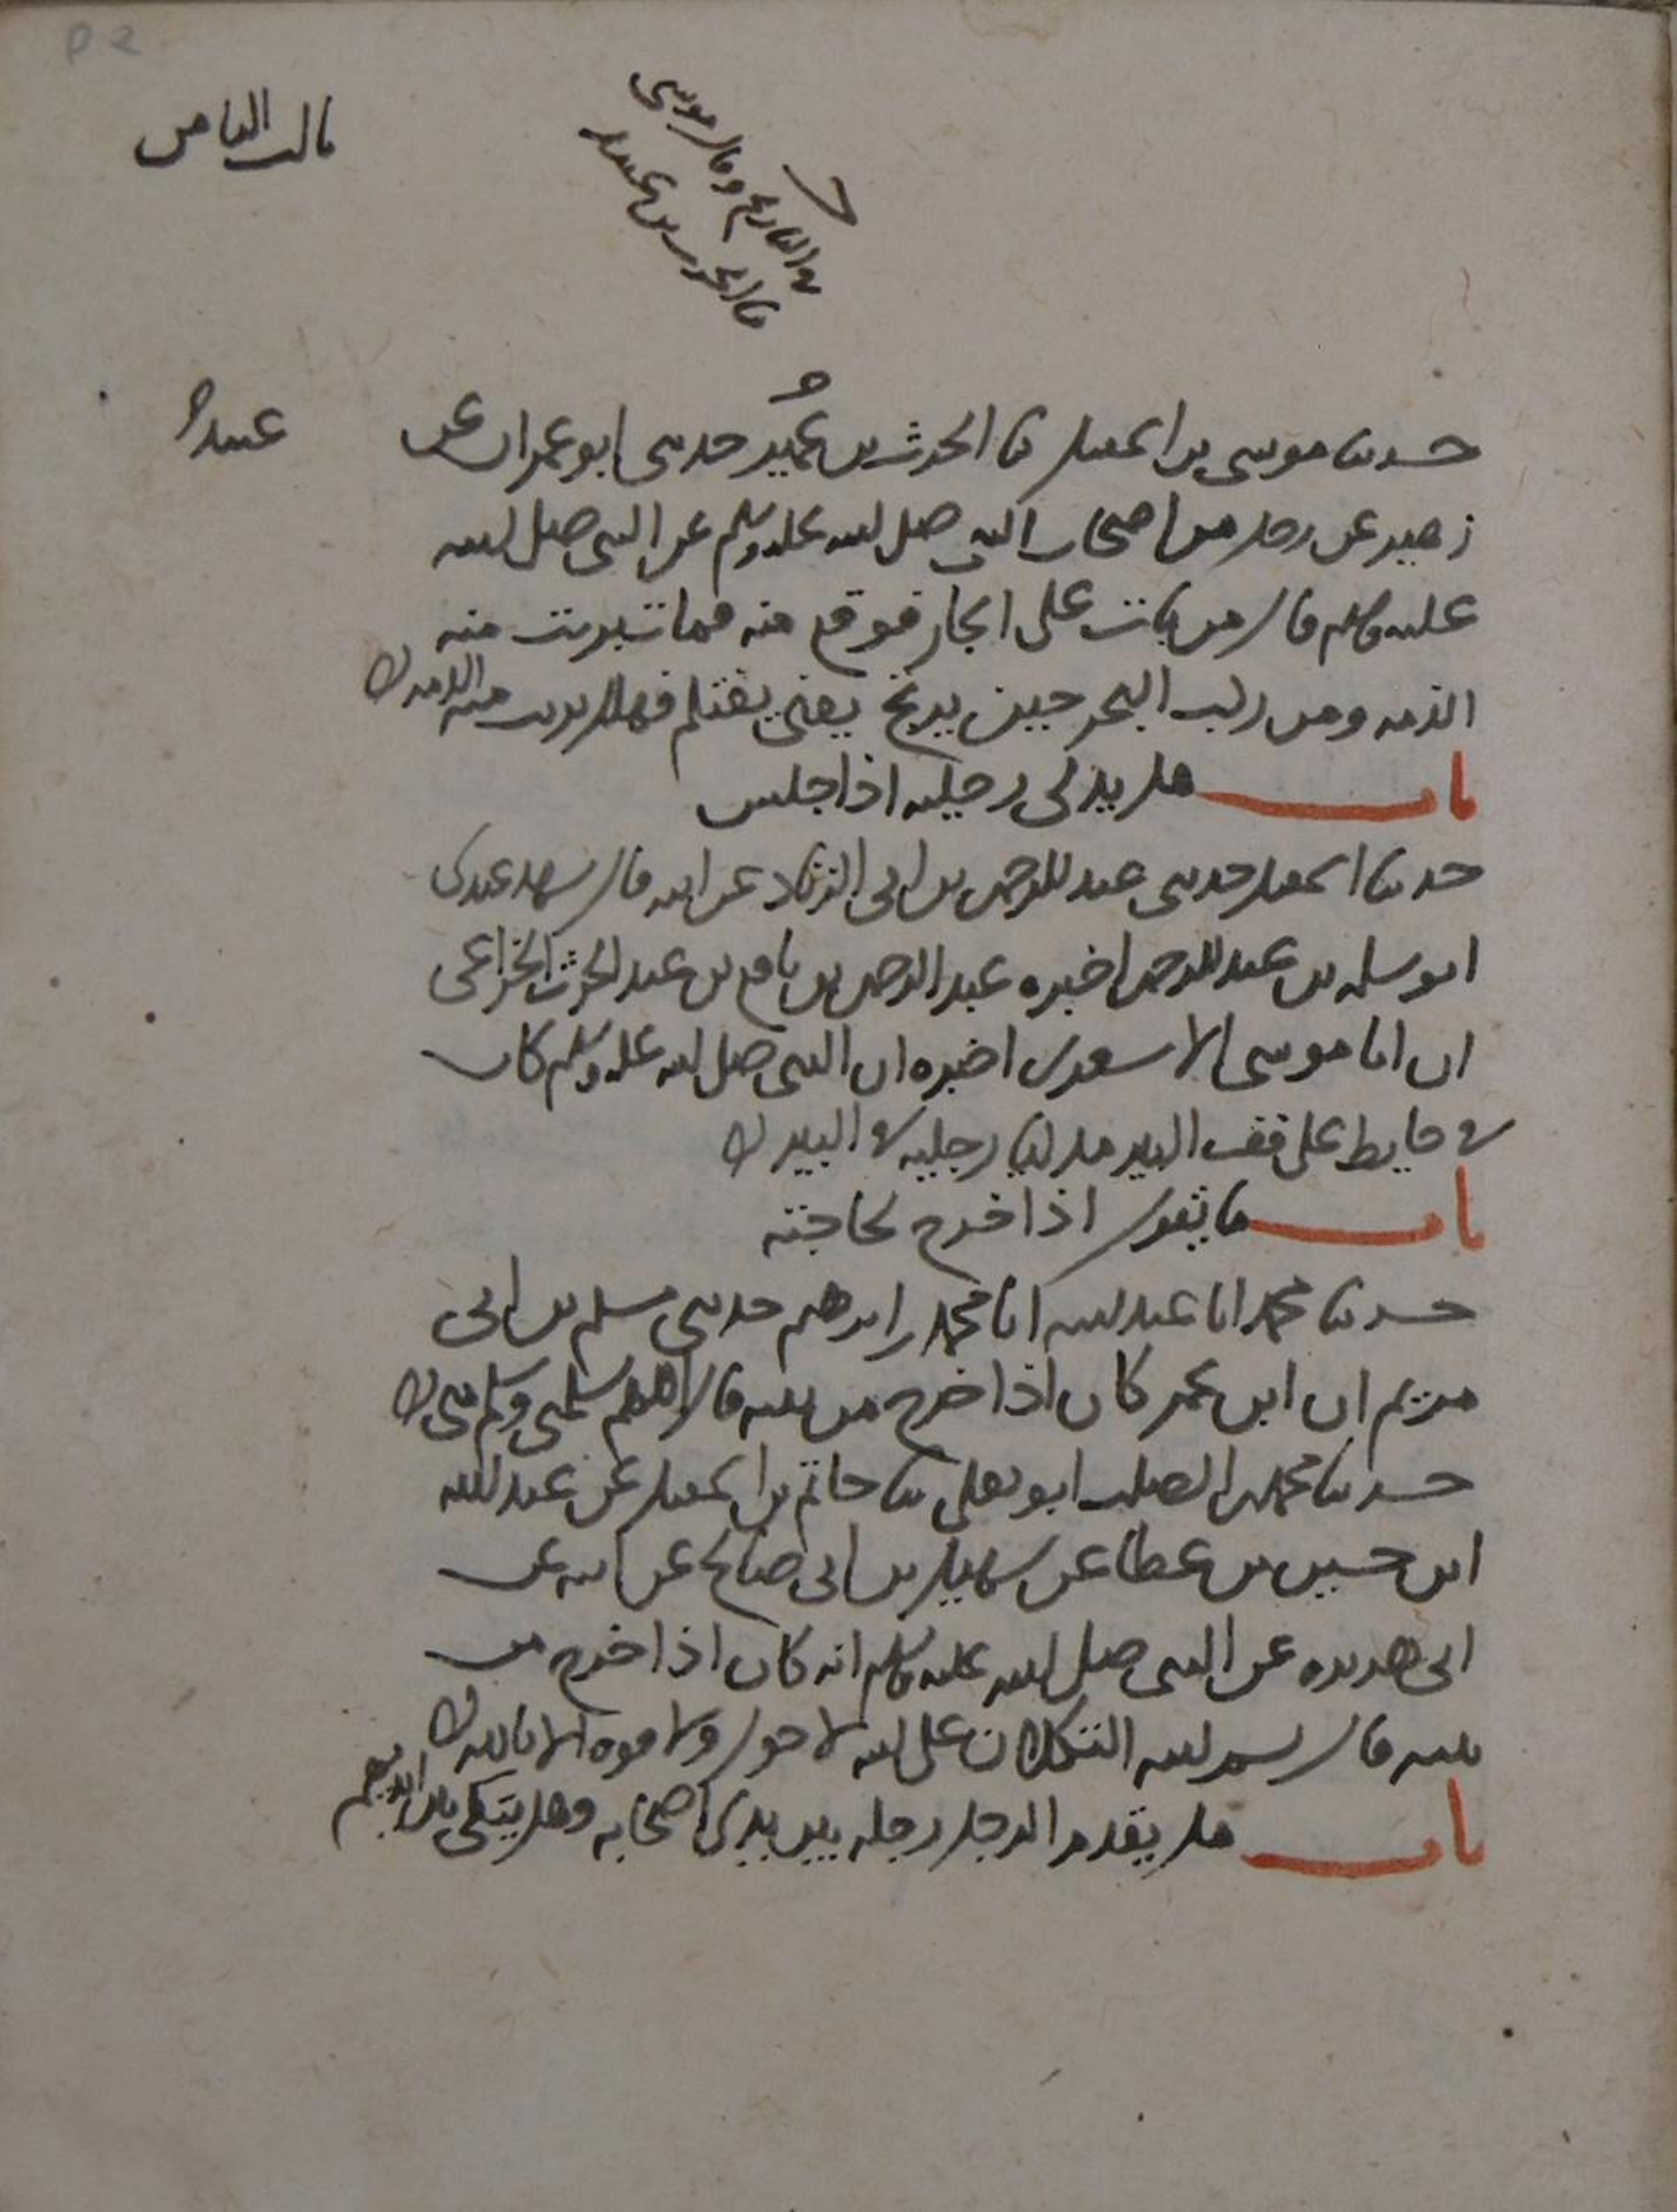 ثالث الثامن
في التاريخ وقال موسى
نا الحرث بن عبيد
حدثنا موسى بن اسمعيل نا الحرث بن عُمَير حدثني ابو عمران عن
عبيد
زهير عن رجل من اصحاب النبي صلى الله عليه وسلم عن النبي صلى الله
عليه وسلم قال من بات على انجار فوقع منه فمات برئت منه
الذمه ومن ركب البحر حين يرتج يعني يغتلم فهلك برئت منه الذمه
باب هل يدلي رجليه اذا جلس
حدثنا اسمعيل حدثني عبد الرحمن بن ابي الزناد عن ابيه قال شهد عندي
ابو سلمه بن عبد الرحمن اخبره عبد الرحمن بن نافع بن عبد الحرث الخزاعي
ان ابا موسى الاشعري اخبره ان النبي صلى الله عليه وسلم كان
في حايط على قف البير مدليا رجليه في البير
باب ما يقول اذا خرج لحاجته
حدثنا محمد انا عبد الله انا محمد بن ابرهيم حدثني مسلم بن ابي
مريم ان ابن عمر كان اذا خرج من بيته قال اللهم سلمني وسلم مني
حدثنا محمد بن الصلت ابو يعلى نا حاتم بن اسمعيل عن عبد الله
ابن حسين بن عطا عن سهيل بن ابي صالح عن ابيه عن
ابي هريره عن النبي صلى الله عليه وسلم انه كان اذا خرج من
بيته قال بسم الله التكلان على الله لا حول ولا قوه الا بالله
باب هل يقدم الرجل رجله بين يدي اصحابه وهل يتكي بين ايديهم